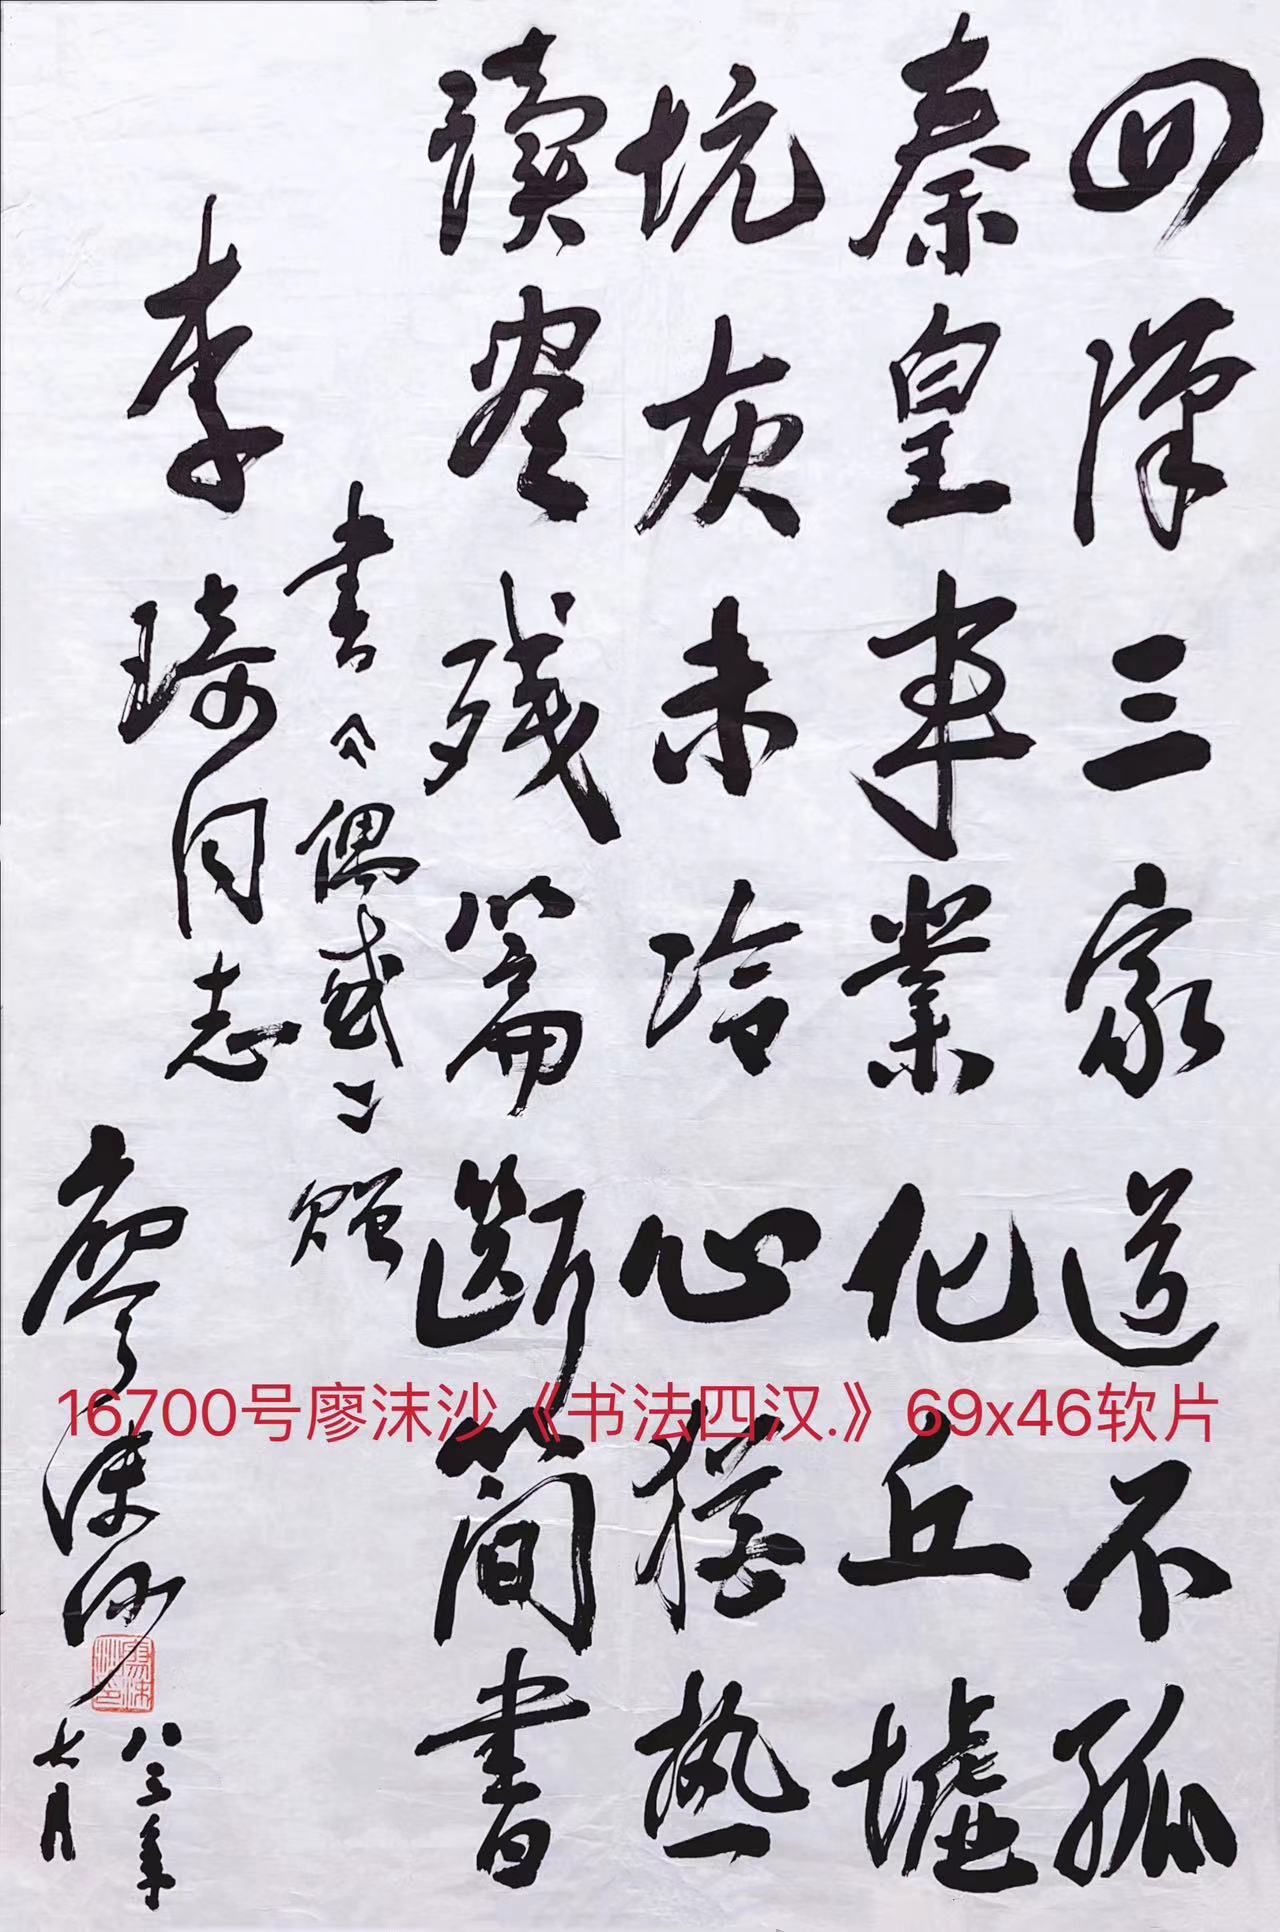 四漢三家道不孤
秦皇事業化丘墟
坑灰未冷心猶热
讀尽残篇斷簡書
書《偶感》贈
李琦同志
廖沫沙
八三年
七月
廖沫沙印
16700号廖沫沙《书法四汉.》69x46软片